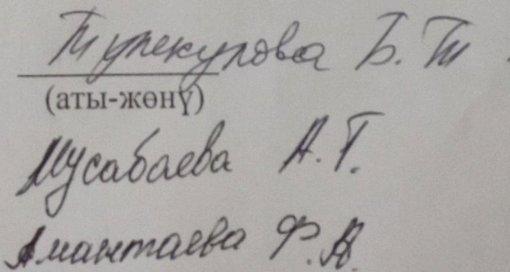 Турекулова Б. Т.
(аты-жөнү)
Мусабаева А.Т.
Амантаева Ф.А.